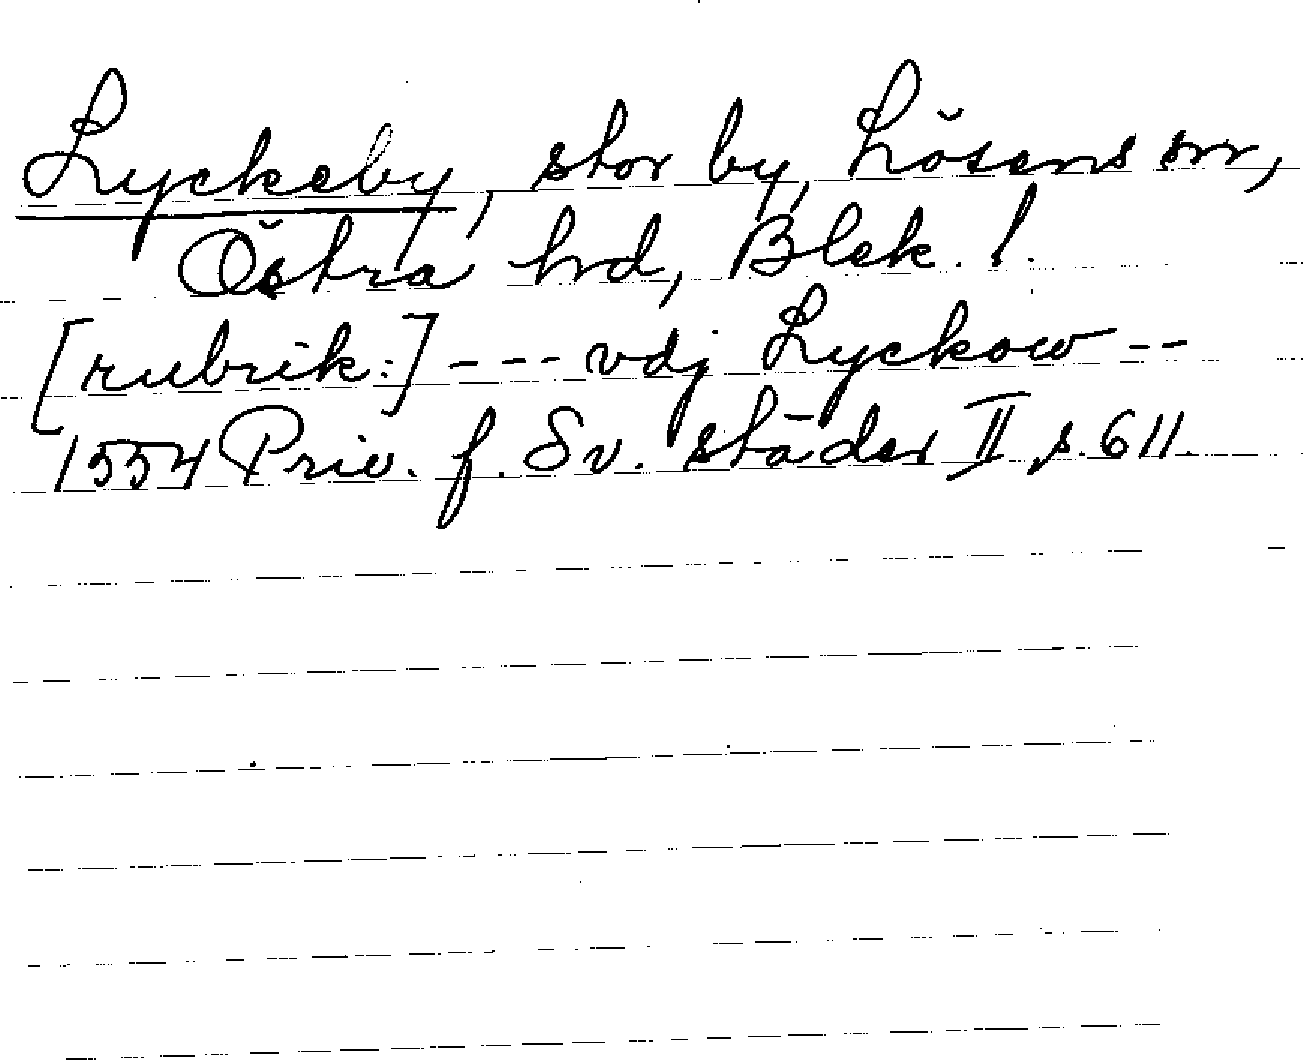 Lyckeby, stor by, Lösens sn,
Östra hd, Blek. l.
[rubrik:] --- vdj Lyckow --
1554 Priv. f. Sv. städer II, s. 611.